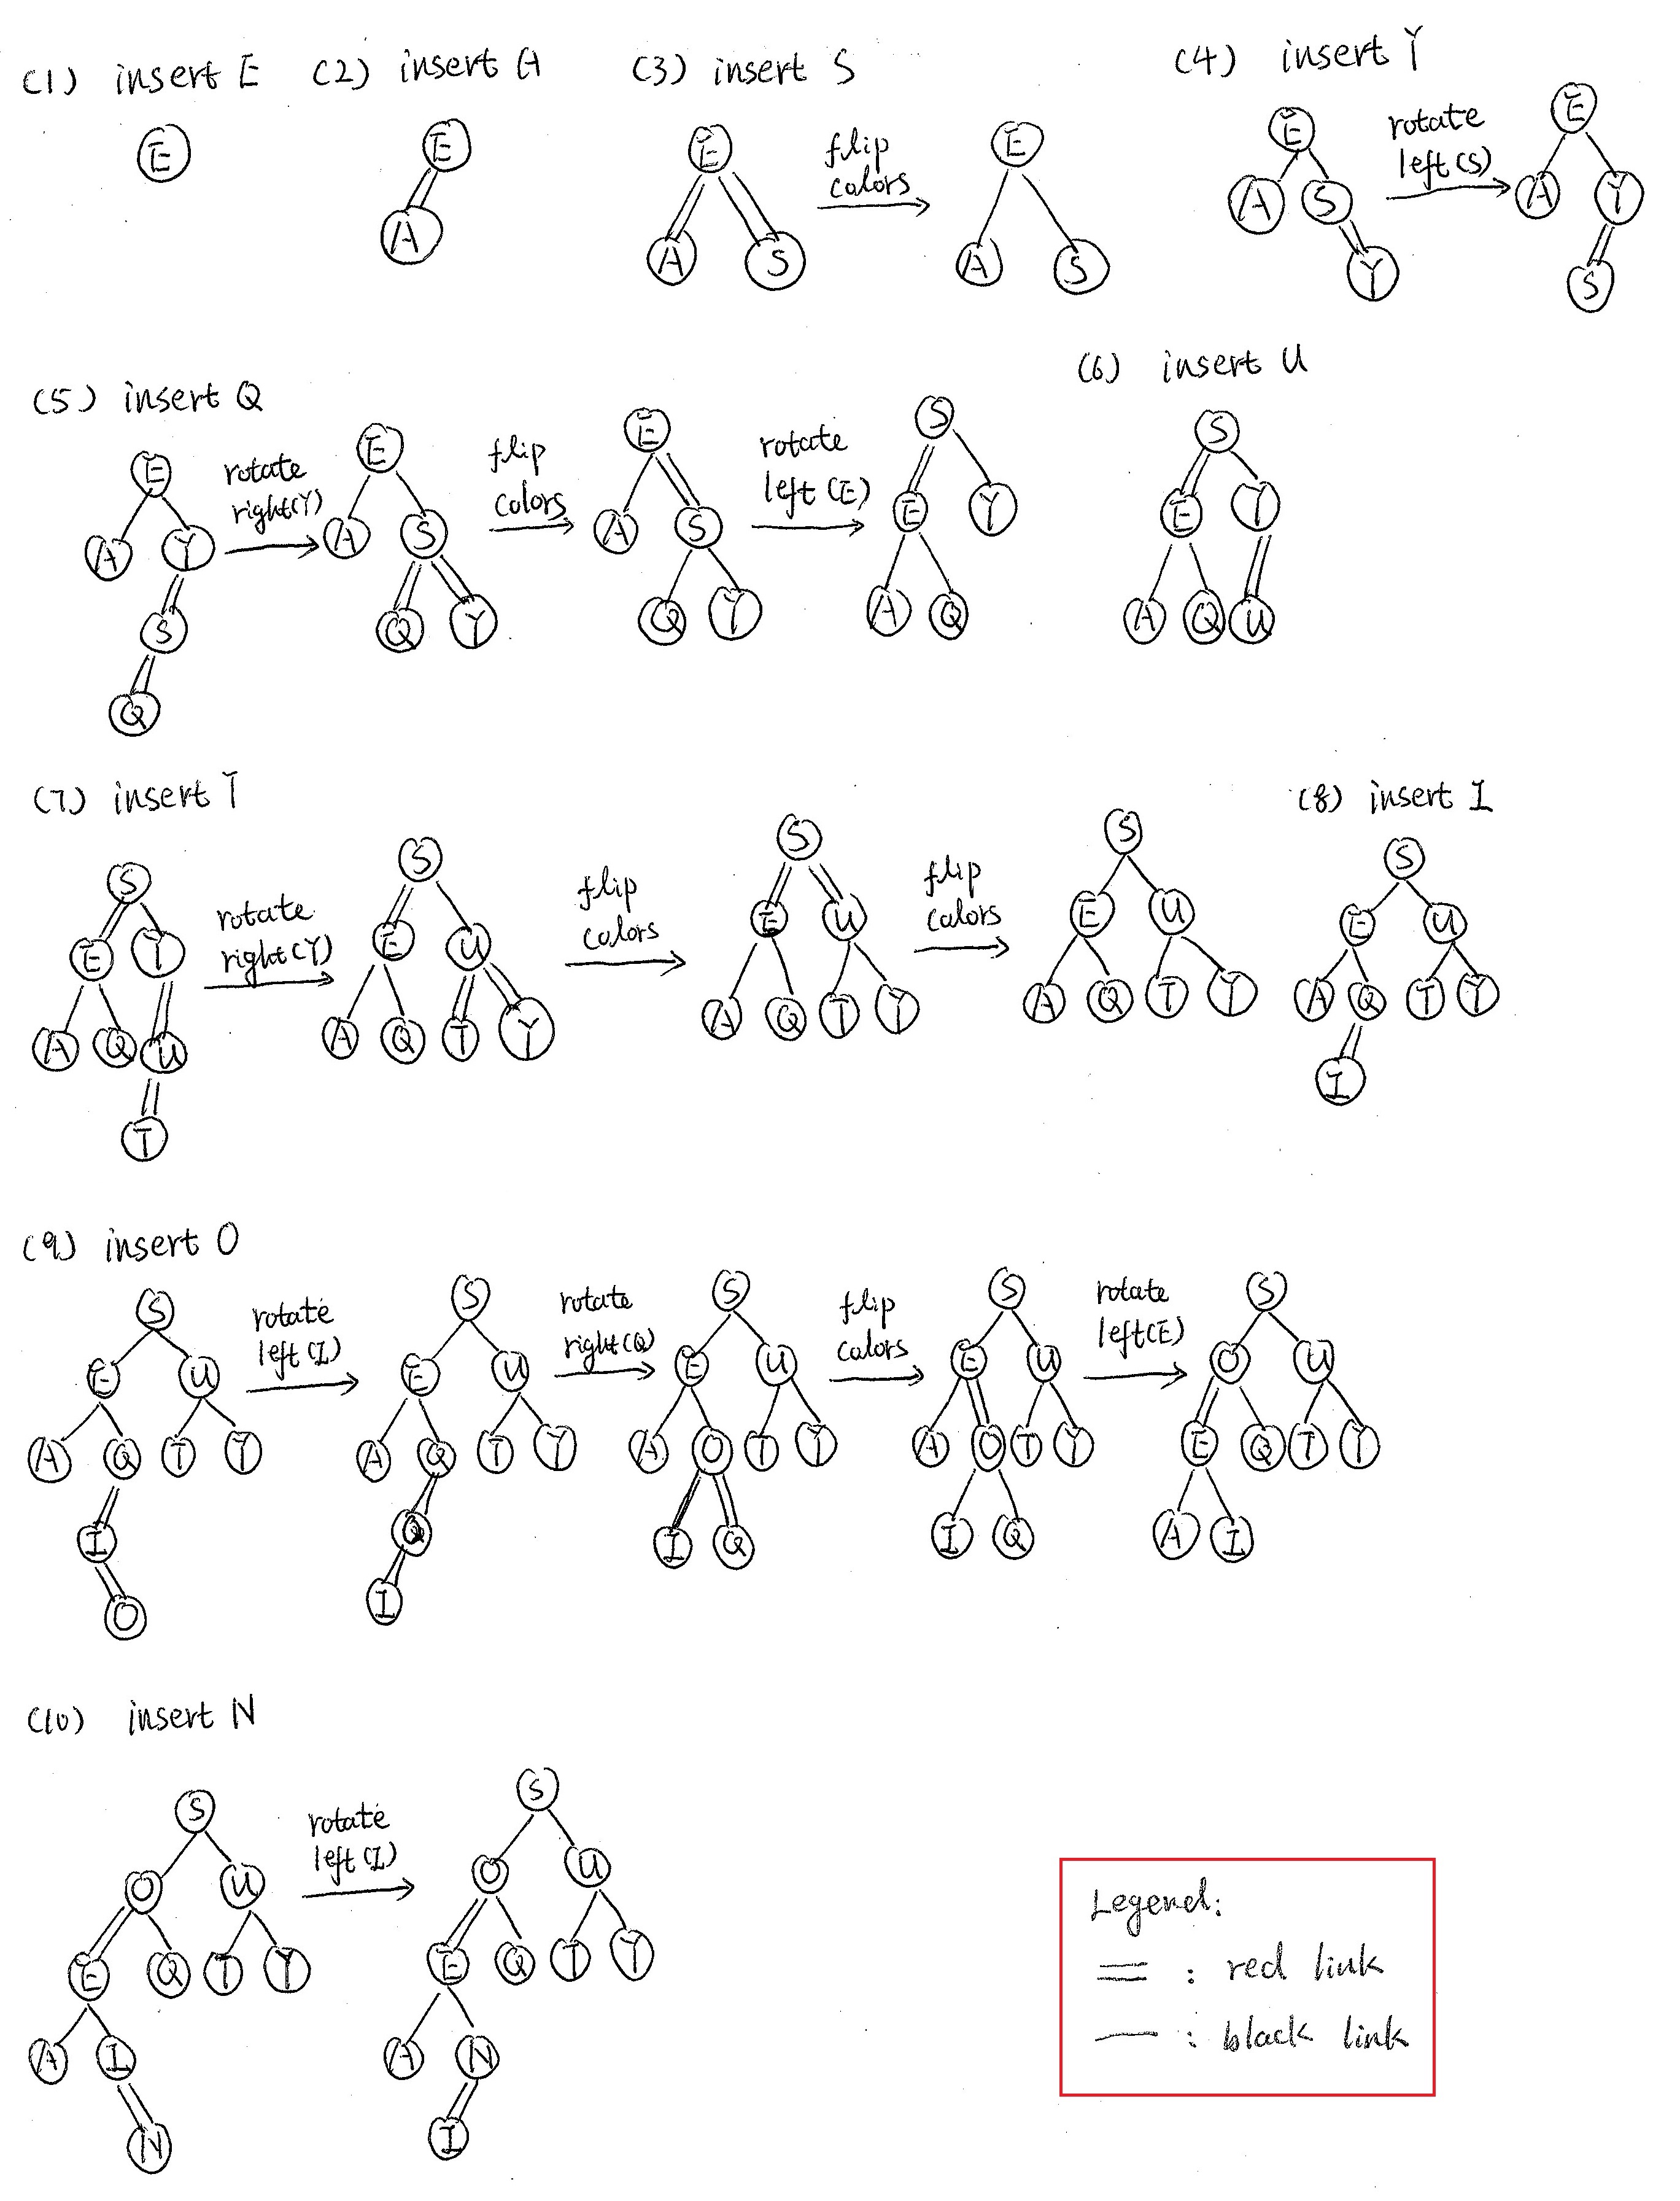 (1) insert E
(2) insert A
(3) insert S
(4) insert Y
E
E
A
E
A S
flip
colors
E
A S
E
A S
Y
rotate
left (S)
E
A Y
S
(5) insert Q
(6) insert U
E
A Y
S
Q
rotate
right(Y)
E
A S
Q Y
flip
colors
E
A S
Q Y
rotate
left (E)
S
E Y
A Q
S
E Y
A Q U
(7) insert T
(8) insert I
S
E Y
A Q U
T
rotate
right(Y)
S
E U
A Q T Y
flip
colors
S
E U
A Q T Y
flip
colors
S
E U
A Q T Y
S
E U
A Q T Y
I
(9) insert O
S
E U
A Q T Y
I
O
rotate
left (I)
S
E U
A Q T Y
I
rotate
right(Q)
S
E U
A O T Y
I Q
flip
colors
S
E U
A O T Y
I Q
rotate
left(E)
S
O U
E Q T Y
A I
(10) insert N
S
O U
E Q T Y
A I
N
rotate
left (I)
S
O U
E Q T Y
A N
I
Legend:
= : red link
— : black link